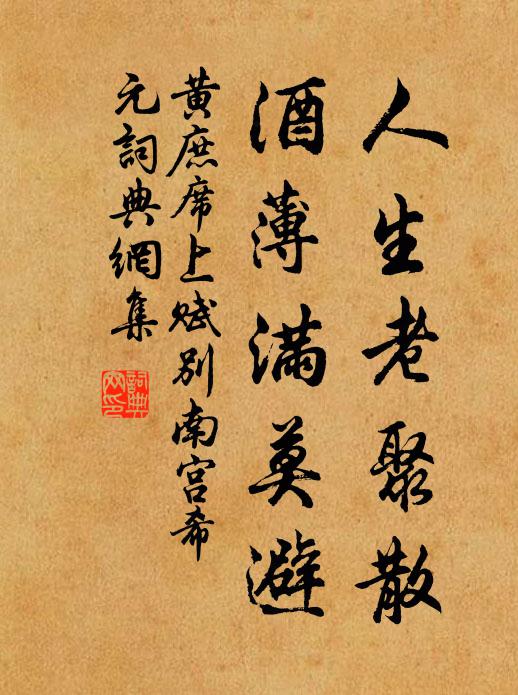 人生老聚散
酒薄满莫避
黄庶席上赋别南宫希
元詞典網集
詞典
网印